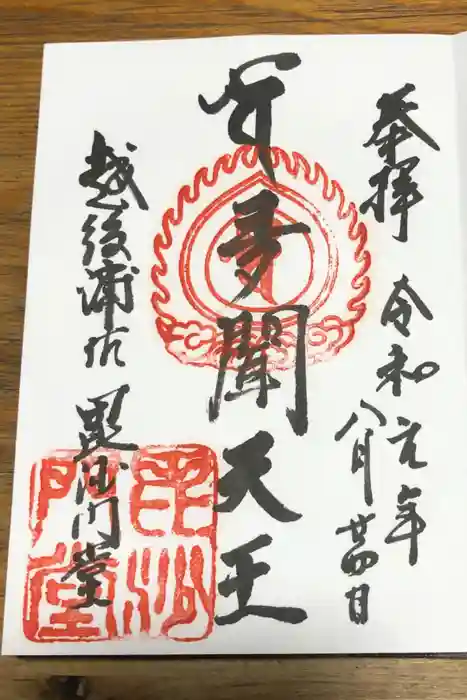 奉拝 令和元年
八月廿四日
多聞天王
越後浦佐 毘沙門堂
毘沙門堂